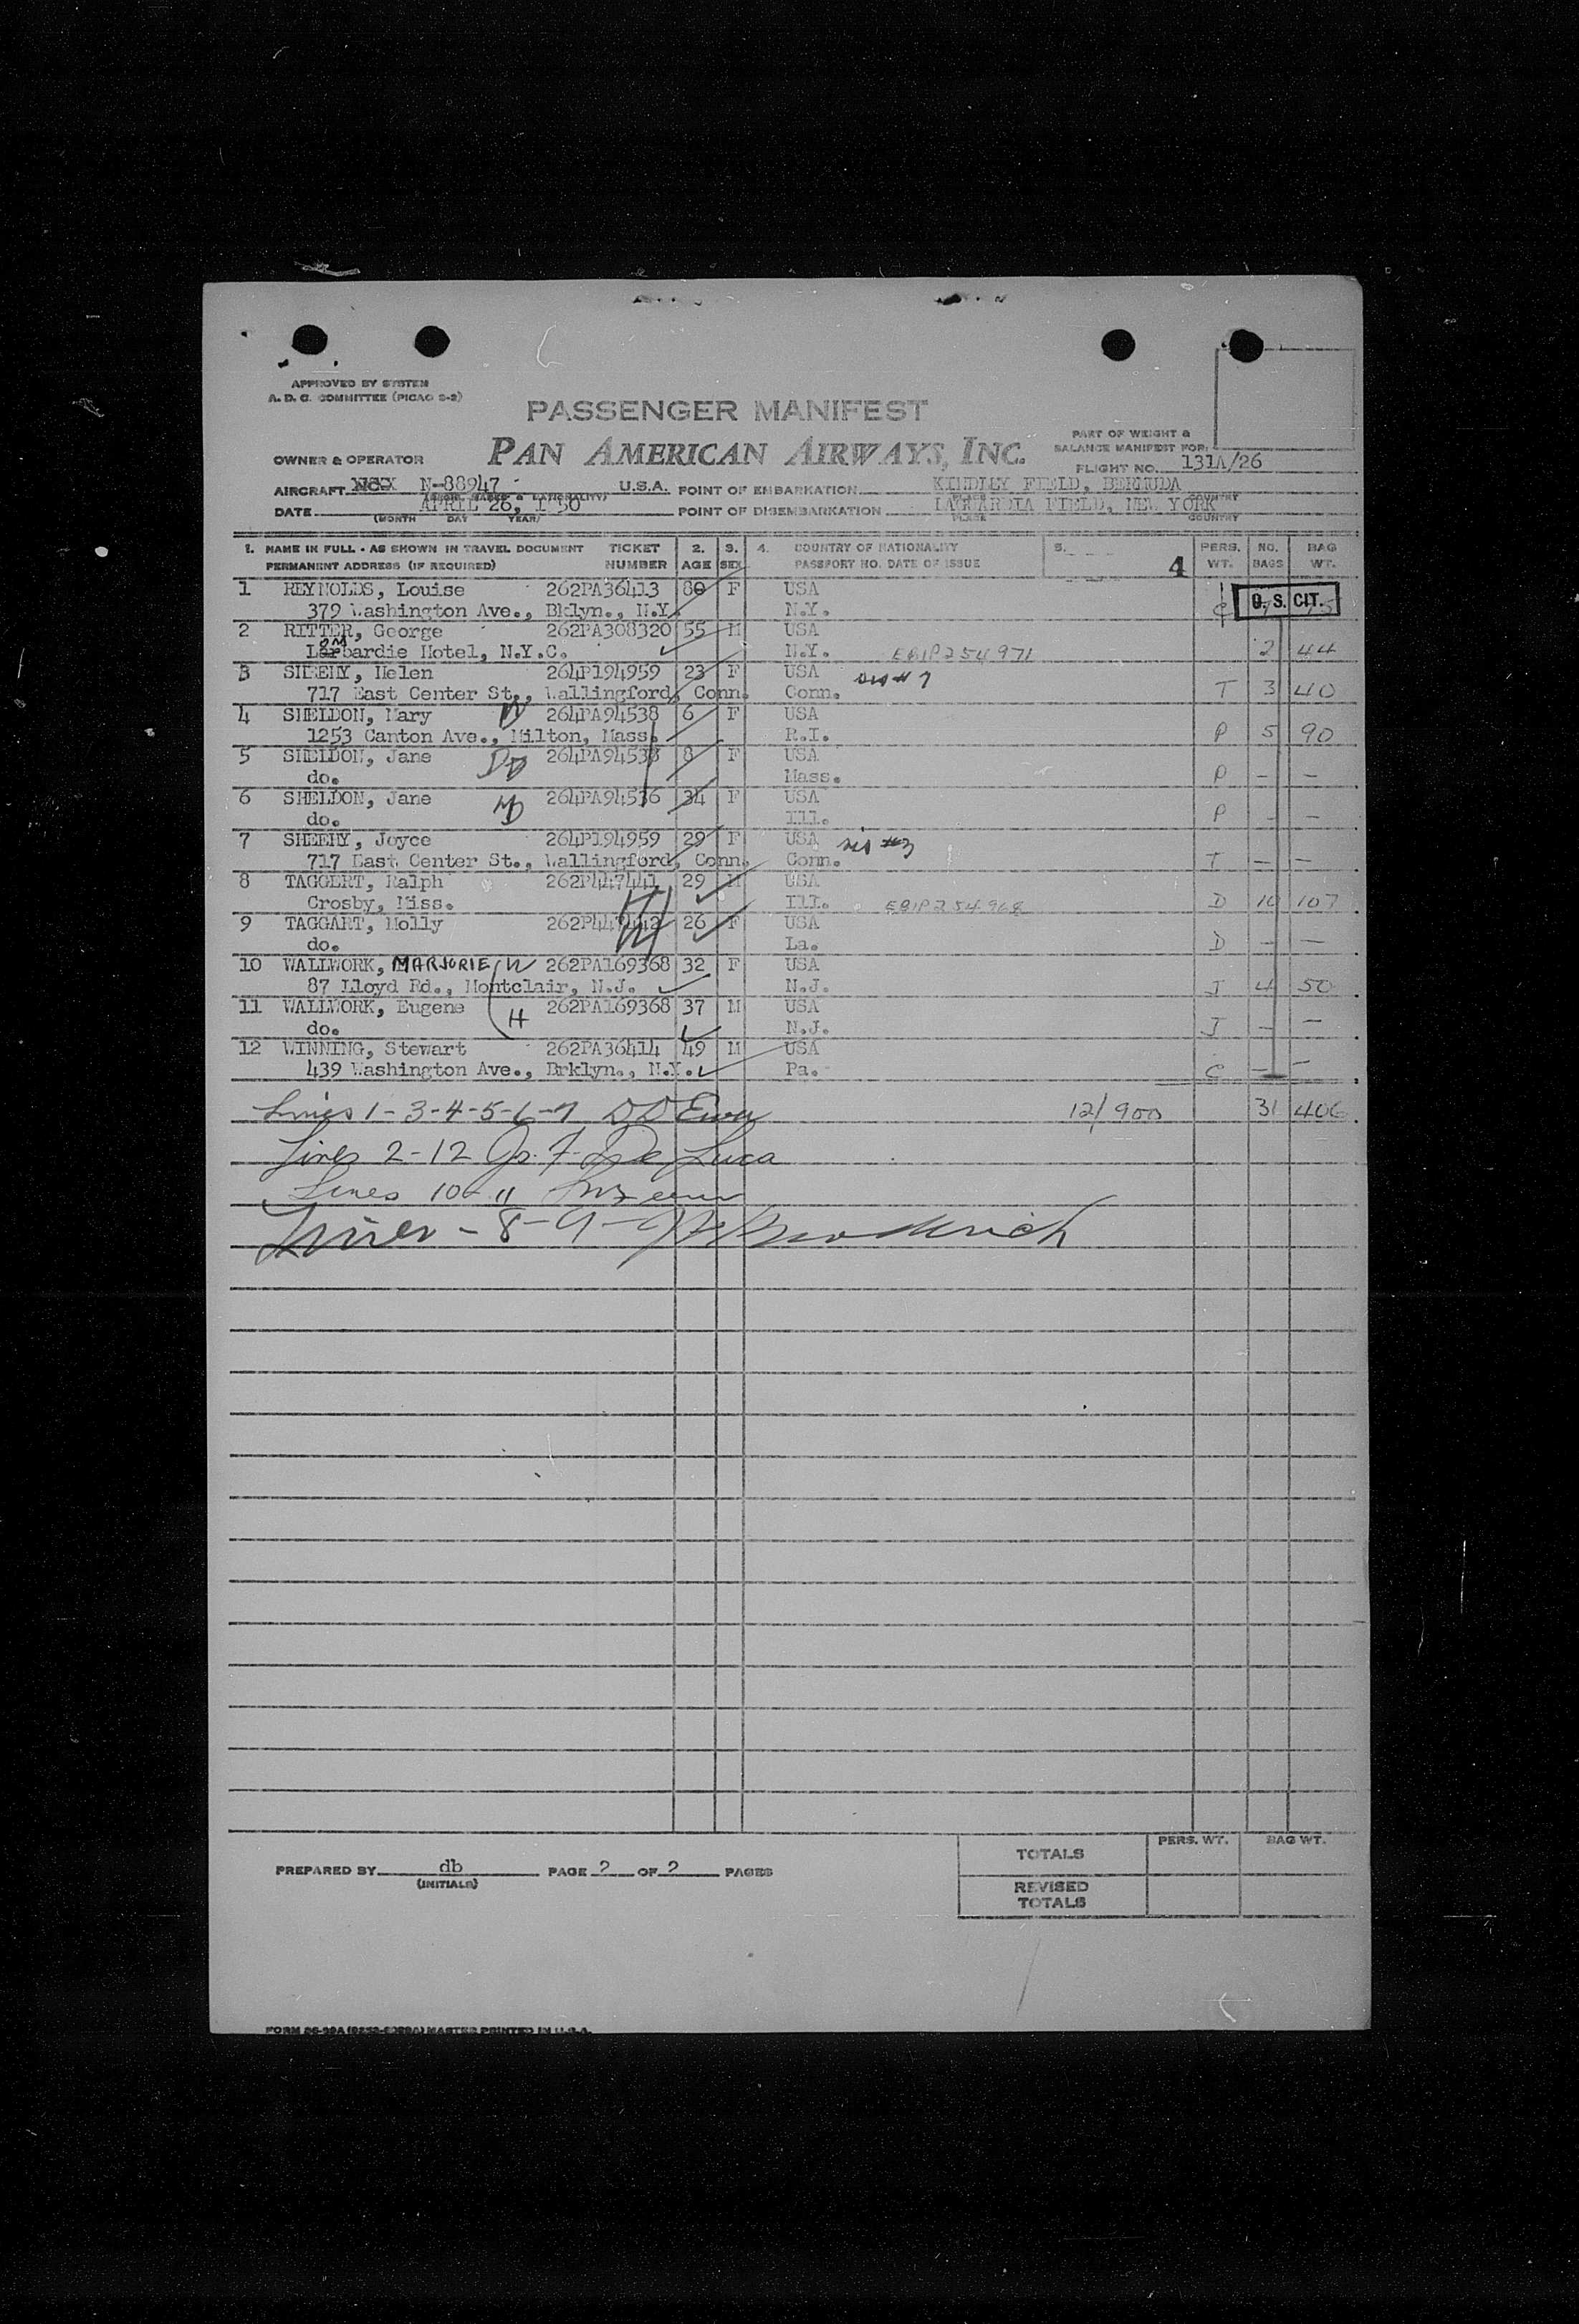 APPROVED BY SYSTEM
A. D. C. COMMITTEE (PICAO S-2)
PASSENGER MANIFEST
PAN AMERICAN AIRWAYS, INC.
OWNER & OPERATOR
PART OF WEIGHT &
BALANCE MANIFEST FOR:
FLIGHT NO. 131A/26
AIRCRAFT N-88947 U.S.A. POINT OF EMBARKATION KINDLEY FIELD, BERMUDA
DATE APRIL 26, 1950 POINT OF DISEMBARKATION LAGUARDIA FIELD, NEW YORK
(MONTH DAY YEAR) PLACE COUNTRY
1. NAME IN FULL - AS SHOWN IN TRAVEL DOCUMENT TICKET 2. 3. 4. COUNTRY OF NATIONALITY 5. PERS. NO. BAG
PERMANENT ADDRESS (IF REQUIRED) NUMBER AGE SEX PASSPORT NO. DATE OF ISSUE 4 WT. BAGS WT.
1 REYNOLDS, Louise 262PA36413 80 F USA U. S. CIT.
379 Washington Ave., Bklyn., N.Y. N.Y. C
2 RITTER, George 262PA308320 55 M USA
Lombardie Hotel, N.Y.C. N.Y. EBIP254971 2 44
3 SHEEHY, Helen 264P194959 23 F USA sis #7
717 East Center St., Wallingford, Conn. Conn. T 3 40
4 SHELDON, Mary D 264PA94538 6 F USA
1253 Canton Ave., Milton, Mass. R.I. P 5 90
5 SHELDON, Jane 264PA94538 8 F USA
do. Mass. P - -
6 SHELDON, Jane 264PA94536 34 F USA
do. Ill. P - -
7 SHEEHY, Joyce 264P194959 29 F USA sis #3
717 East Center St., Wallingford, Conn. Conn. T - -
8 TAGGERT, Ralph 262P447441 29 M USA
Crosby, Miss. Ill. EBIP254968 D 10 107
9 TAGGART, Molly W 262P447442 26 F USA
do. La. D - -
10 WALLWORK, MARJORIE W 262PA169368 32 F USA
87 Lloyd Rd., Montclair, N.J. N.J. J 4 50
11 WALLWORK, Eugene H 262PA169368 37 M USA
do. N.J. J - -
12 WINNING, Stewart 262PA36414 49 M USA
439 Washington Ave., Brklyn., N.Y. Pa. C - -
Lines 1-3-4-5-6-7 12/900 31 406
Lines 2-12 De Luca
Lines 10-11
Lines - 8-9-
PREPARED BY db PAGE 2 OF 2 PAGES
(INITIALS)
PERS. WT. BAG WT.
TOTALS
REVISED
TOTALS